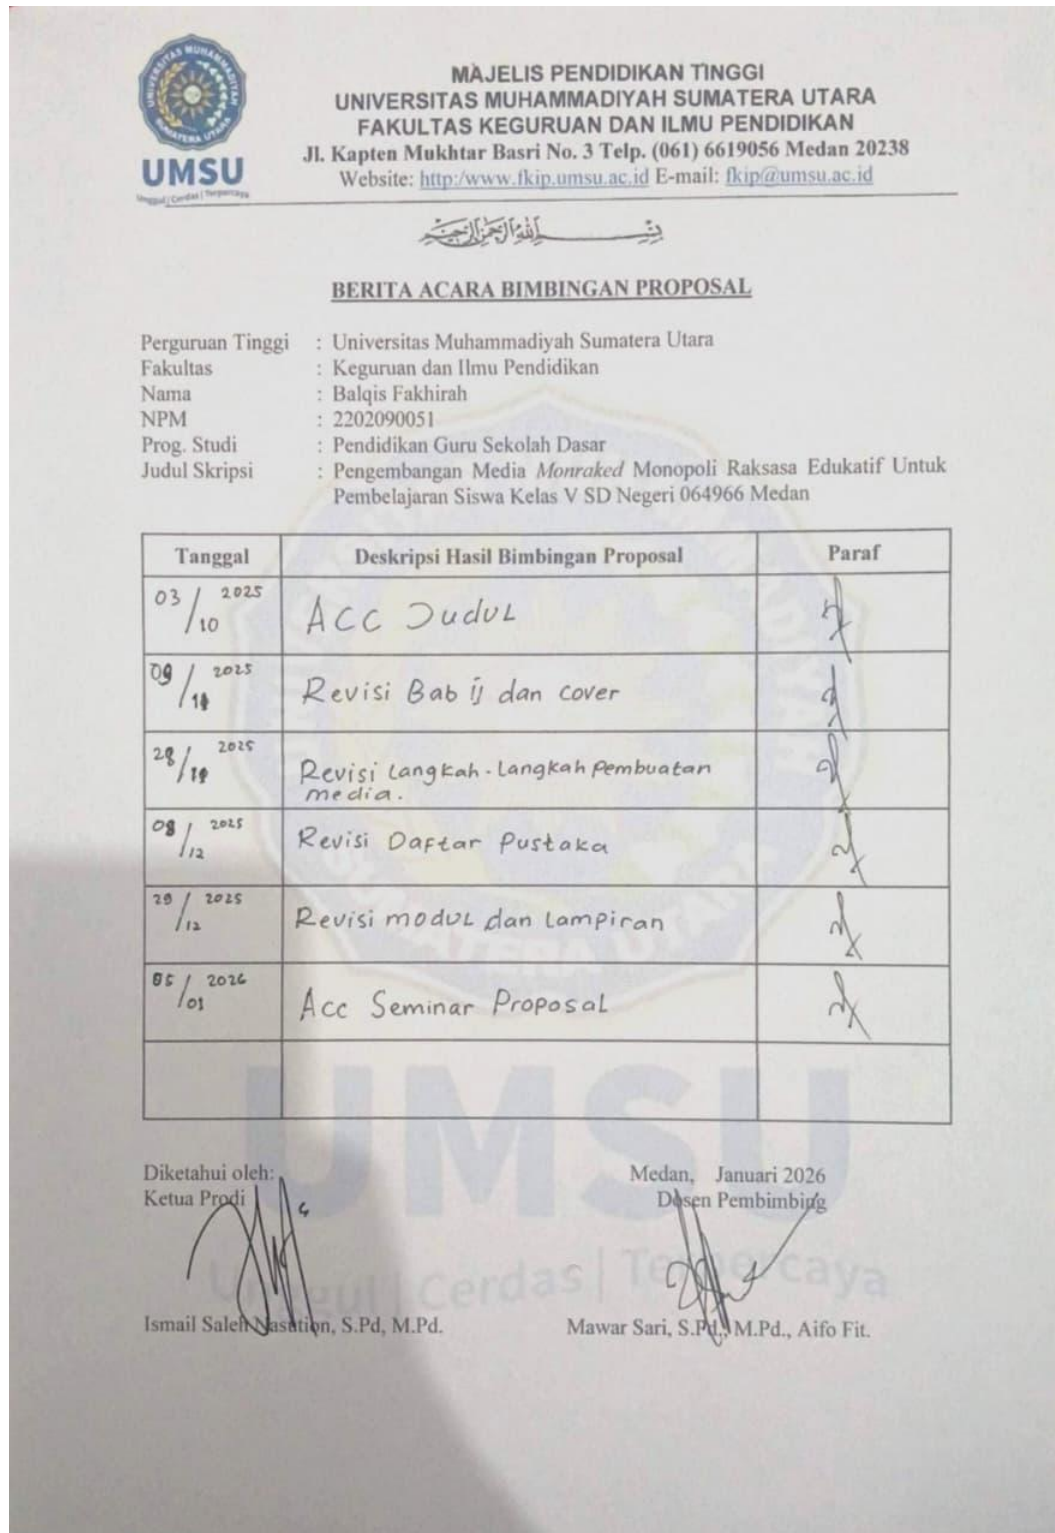 UNIVERSITAS MUHAMMADIYAH
SUMATERA UTARA
UMSU
Unggul | Cerdas | Terpercaya
MAJELIS PENDIDIKAN TINGGI
UNIVERSITAS MUHAMMADIYAH SUMATERA UTARA
FAKULTAS KEGURUAN DAN ILMU PENDIDIKAN
Jl. Kapten Mukhtar Basri No. 3 Telp. (061) 6619056 Medan 20238
Website: http:/www.fkip.umsu.ac.id E-mail: fkip@umsu.ac.id
بسم الله الرحمن الرحيم
BERITA ACARA BIMBINGAN PROPOSAL
Perguruan Tinggi : Universitas Muhammadiyah Sumatera Utara
Fakultas : Keguruan dan Ilmu Pendidikan
Nama : Balqis Fakhirah
NPM : 2202090051
Prog. Studi : Pendidikan Guru Sekolah Dasar
Judul Skripsi : Pengembangan Media Monraked Monopoli Raksasa Edukatif Untuk
Pembelajaran Siswa Kelas V SD Negeri 064966 Medan
Tanggal Deskripsi Hasil Bimbingan Proposal Paraf
03/10 2025 ACC Judul
09/ 2025 Revisi Bab ij dan cover
28/ 2025 Revisi Langkah-Langkah Pembuatan
media.
08/12 2025 Revisi Daftar Pustaka
29/12 2025 Revisi modul dan Lampiran
05/01 2026 Acc Seminar Proposal
UMSU
Unggul | Cerdas | Terpercaya
Diketahui oleh: Medan, Januari 2026
Ketua Prodi Dosen Pembimbing
Ismail Saleh Nasution, S.Pd, M.Pd. Mawar Sari, S.Pd., M.Pd., Aifo Fit.